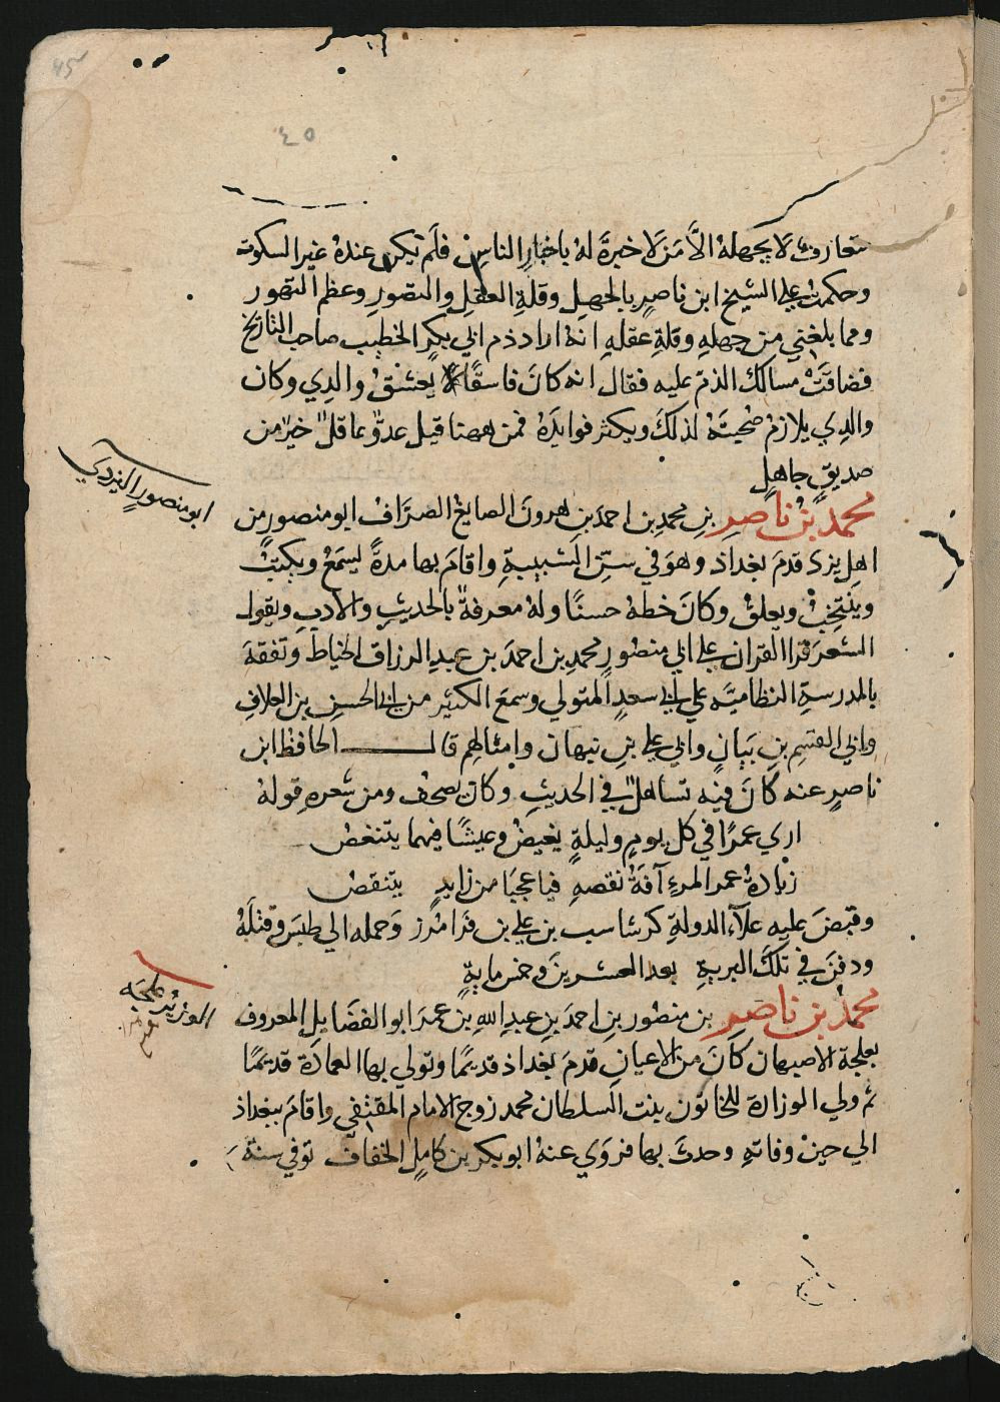 ٤٥
متعارف لا يجهله الا من لا خبرة له باخبار الناس فلم يكن عنده غير السكوت
وحكمت علي الشيخ ابن ناصر بالجهل وقلة العقل والتصور وعظم التهور
ومما بلغني من جهله وقلة عقله انه اراد ذم ابي بكر الخطيب صاحب التاريخ
فضاقت مسالك الذم عليه فقال انه كان فاسقا يعشق والدي وكان
والدي يلازم صحبته لذلك ويكثر فوايده فمن ههنا قيل عدو عاقل خير من
صديق جاهل
ابو منصور اليزدي
محمد بن ناصر بن محمد بن احمد بن هرون الصايغ الصراف ابو منصور من
اهل يزد قدم بغداد وهو في سن الشبيبة واقام بها مدة يسمع ويكتب
وينتخب ويعلق وكان خطه حسنا وله معرفة بالحديث والادب ويقول
الشعر قرا القران علي ابي منصور محمد بن احمد بن عبد الرزاق الخياط وتفقه
بالمدرسة النظامية علي ابي سعد المتولي وسمع الكثير من ابي الحسن بن العلاف
وابي القسم بن بيان وابي علي بن نبهان وامثالهم قال الحافظ ابن
ناصر عنه كان فيه تساهل في الحديث وكان يصحف ومن شعره قوله
اري عمرا في كل يوم وليلة يغيض وعيشا فيهما يتنغص
زيادة عمر المرء آفة نقصه فيا عجبا من زايد يتنقص
وقبض عليه علاء الدولة كرشاسب بن علي بن فرامرز وحمله الي طبس وقتله
ودفن في تلك البرية بعد العشرين وخمس ماية
الوزير علجه
محمد بن ناصر بن منصور بن احمد بن عبد الله بن عمر ابو الفضايل المعروف
بعلجة الاصبهان كان من الاعيان قدم بغداد قديما وتولي بها العمادة قديما
ثم ولي الوزارة للخاتون بنت السلطان محمد زوج الامام المقتفي واقام ببغداد
الي حين وفاته وحدث بها فروي عنه ابو بكر بن كامل الخفاف توفي سنة